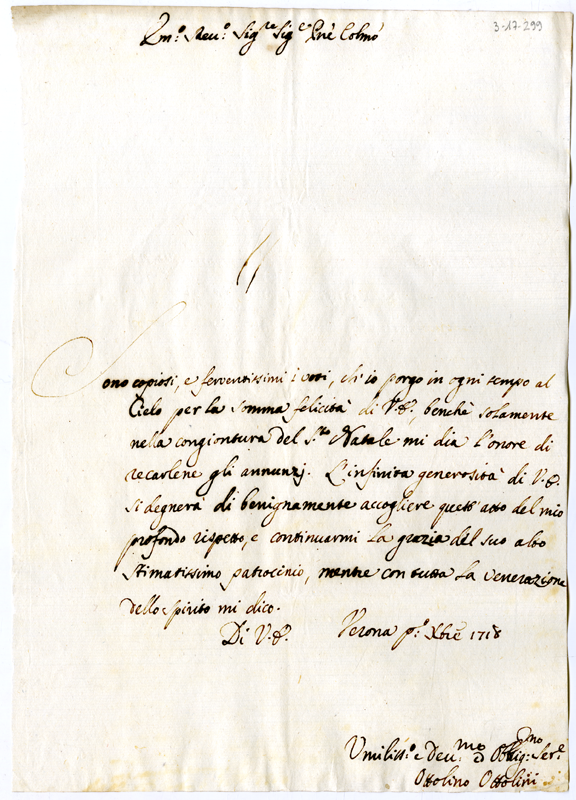 3-17-299
Em.º Rev.º Sig.re Sig.e Pñe Colmo
Sono copiosi, e ferventissimi i voti, ch'io porgo in ogni tempo al
Cielo per la somma felicità di V.E., benchè solamente
nella congiontura del S.to Natale mi dia l'onore di
recarlene gli annunzj. L'infinita generosità di V.E.
si degnerà di benignamente accogliere quest'atto del mio
profondo rispetto, e continuarmi la grazia del suo alto
stimatissimo patrocinio, mentre con tutta la venerazione
dello spirito mi dico.
Di V.E. Verona p.º Xbre 1718
Umiliss.º e Dev.mo ed Obblig.mo Ser.e
Ottolino Ottolini